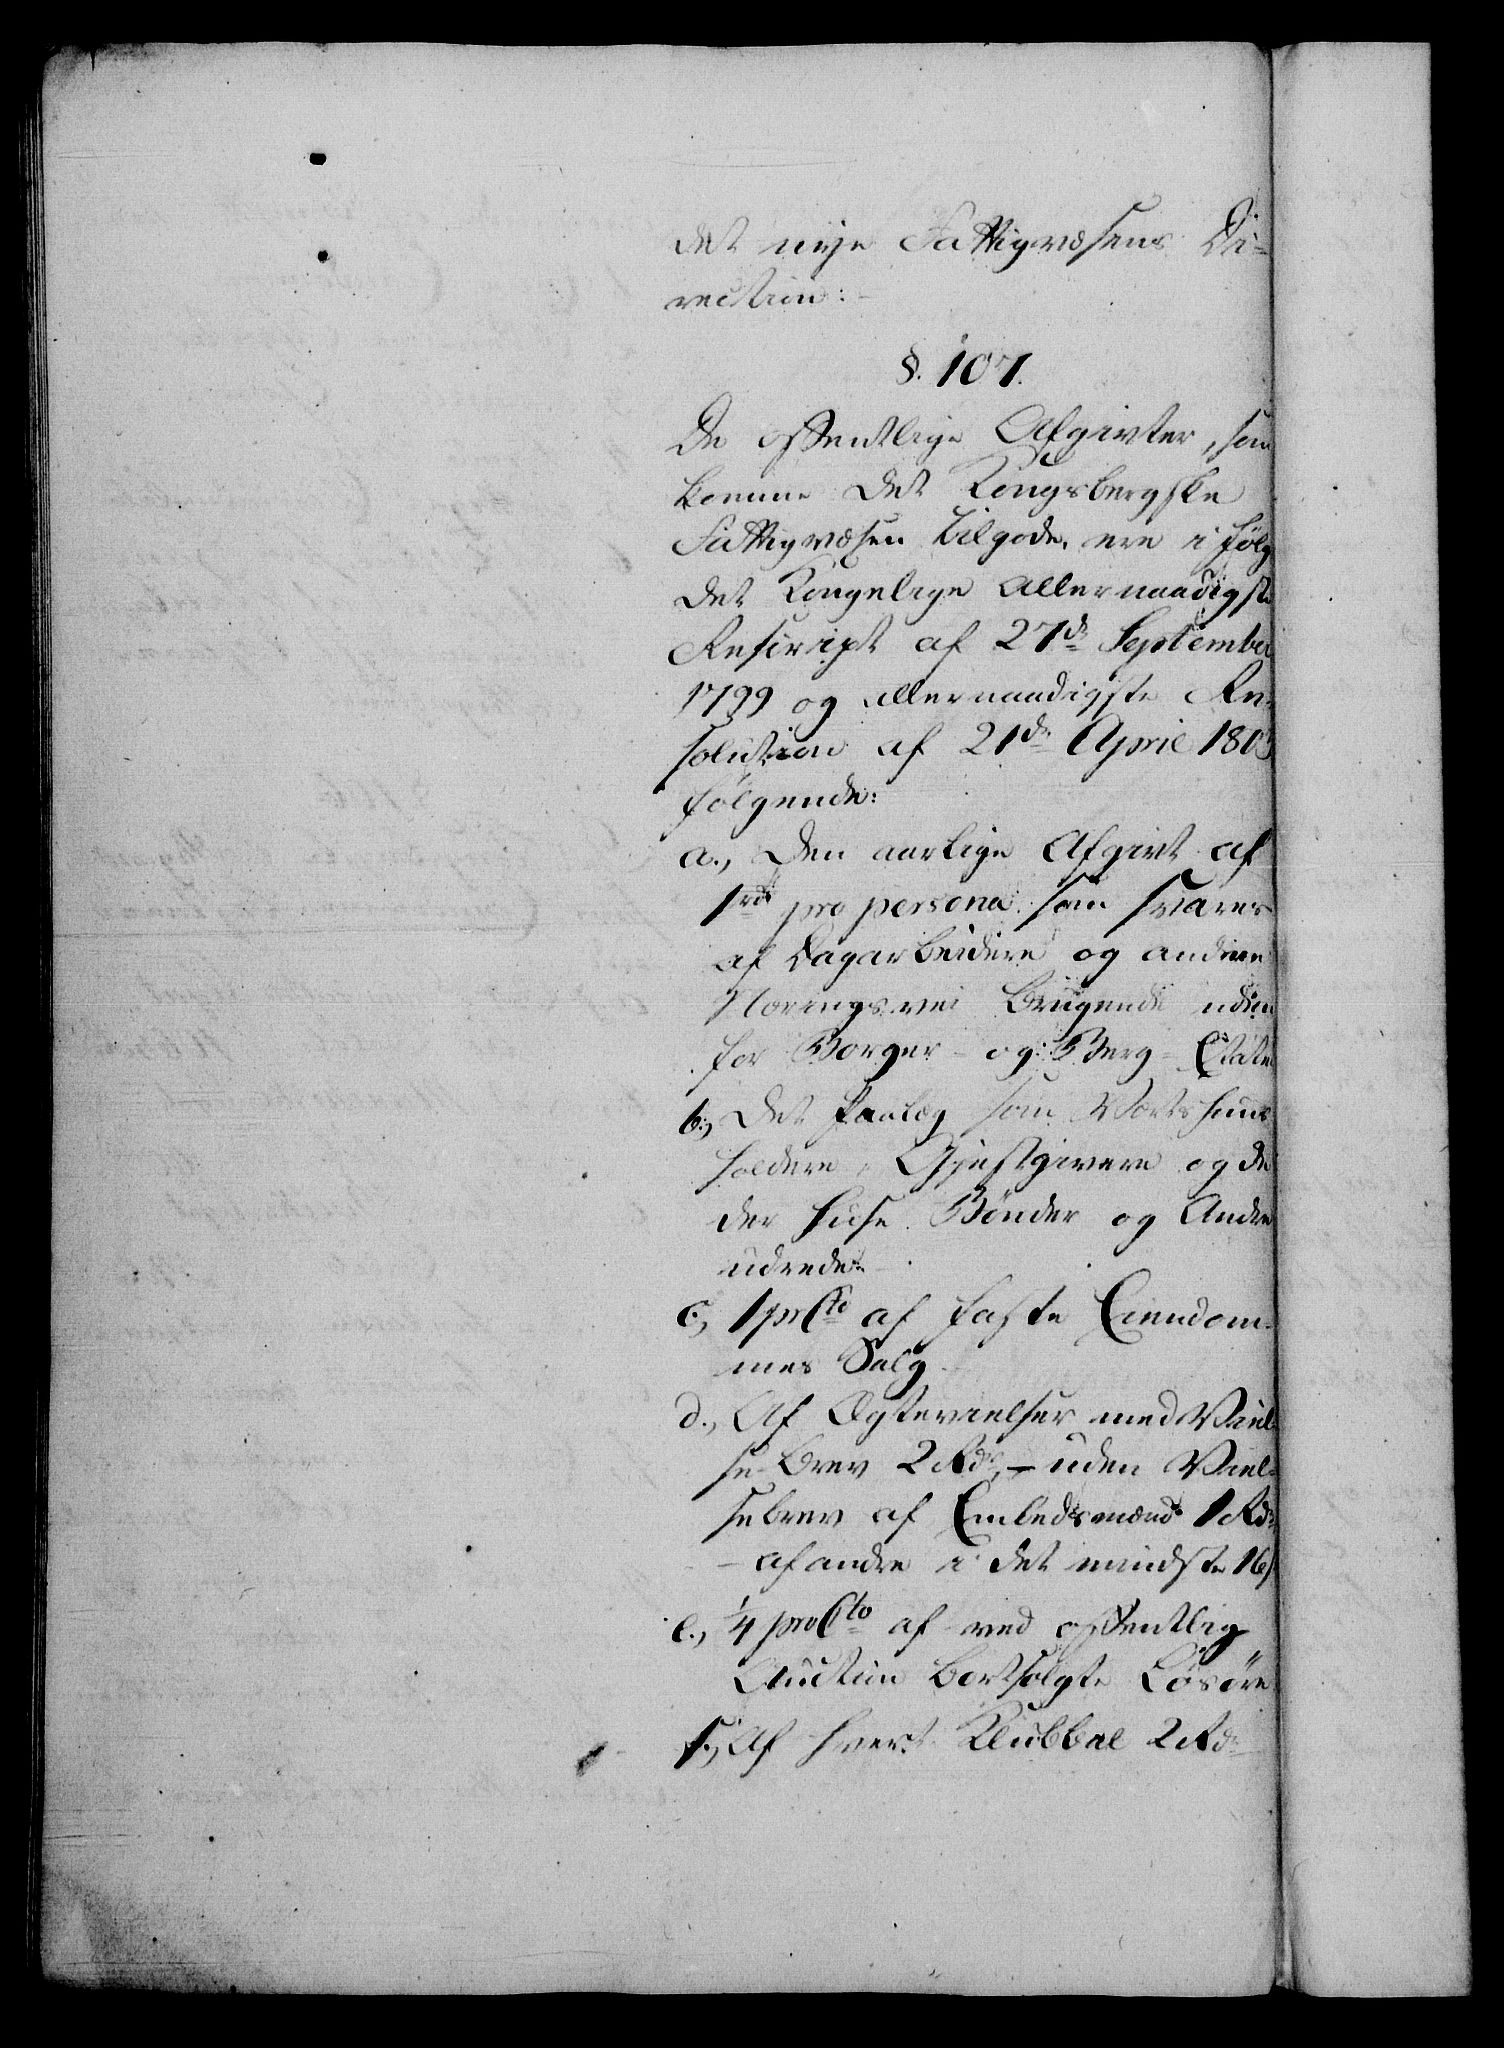 det nye Fattigvæsens Di-
rection:
§. 107.
De offentlige Afgivter, som
komme det Kongsbergske
Fattigvæsen tilgode, ere i følg
det Kongelige allernaadigste
Rescript af 27de September
1799 og allernaadigste Re-
solution af 21de April 1803
følgende:
a., Den aarlige Afgivt af
1rd pro persona som svares
af Dagarbeidere og andre
Næringsvei brugende uden
for Borger- og Berg-Etaten
b., Det Paalæg som Vertshuus
holdere, Gjestgivere og de
der huse Bönder og Andre
udrede.
c., 1 prCto af faste Eiendom-
mes Salg
d., Af Ægtevielser med Viel-
se-brev 2 Rd, - uden Viel-
sebrev af Embedsmænd 1 Rd
- af andre i det mindste 16s
e., 1/4 proCto af ved offentlig
Auction bortsolgte Løsøre
f., Af hvert Klubbal 2 Rd